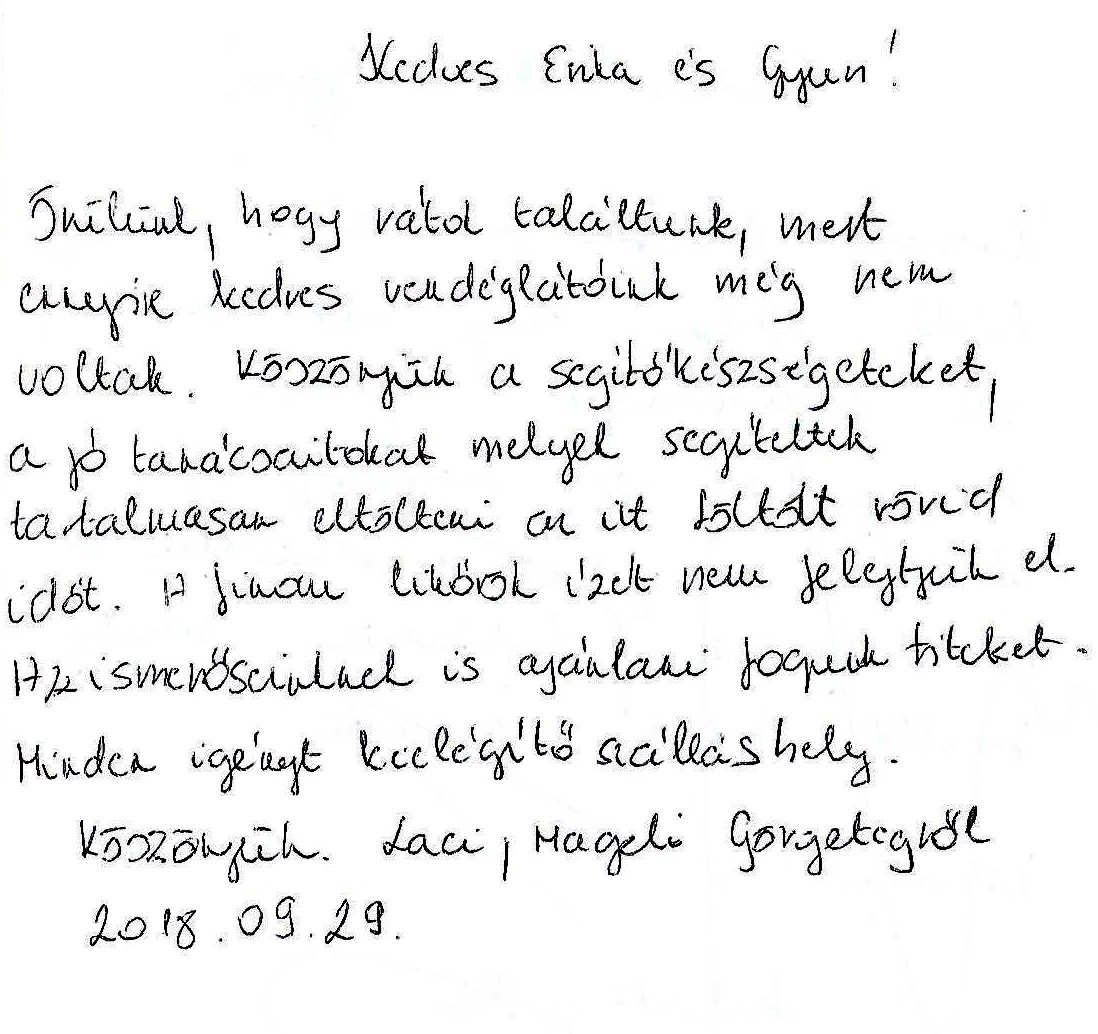 Kedves Erika és Gyuri!
Örülünk, hogy rátok találtunk, mert
ennyire kedves vendéglátóink még nem
voltak. Köszönjük a segítőkészségeteket,
a jó tanácsaitokat melyek segítettek
tartalmasan eltölteni az itt töltött rövid
időt. A finom likőrök ízét nem felejtjük el.
Az ismerőseinknek is ajánlani fogunk titeket.
Minden igényt kielégítő szálláshely.
Köszönjük. Laci, Magdi Görgetegről
2018.09.29.